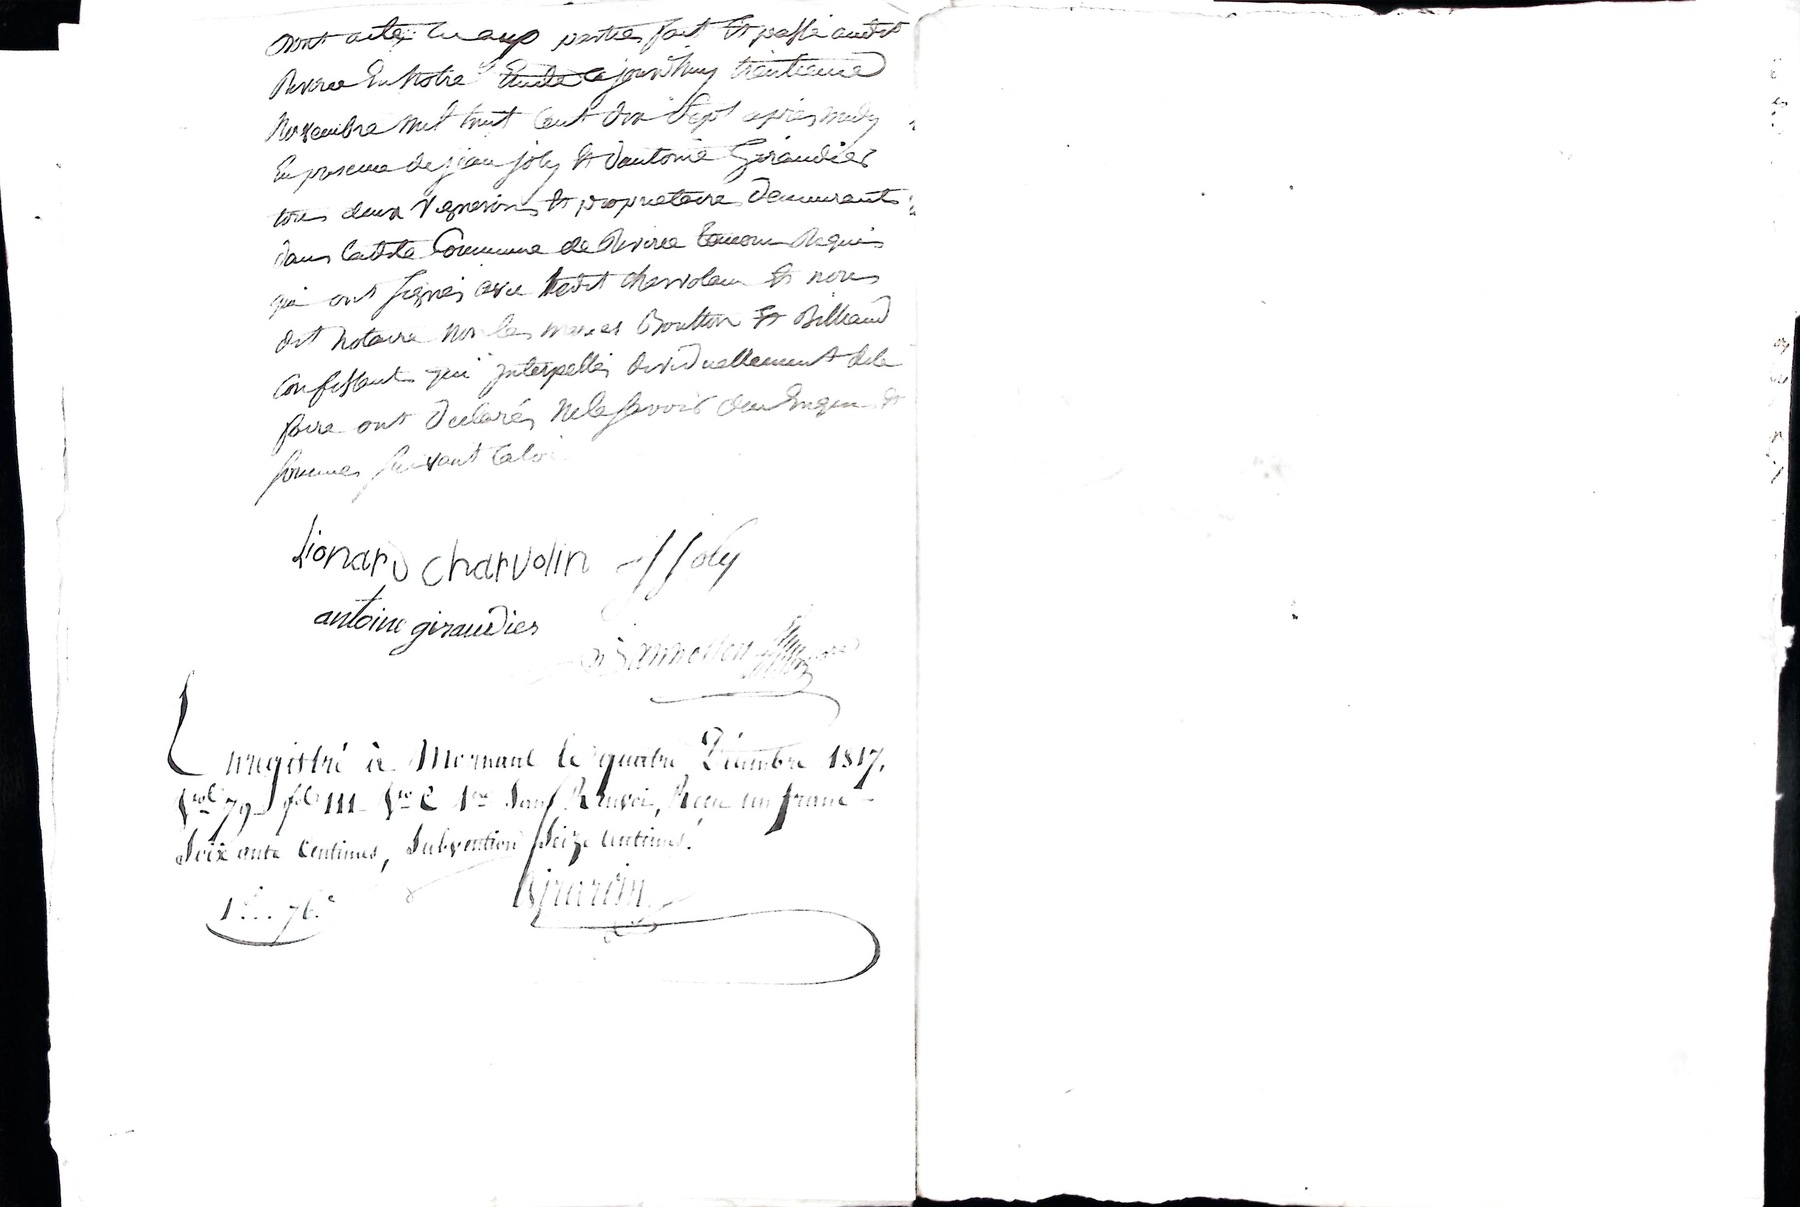 Dont acte aux parties fait Et passé audit
Riverie En Notre Etude cejourd'huy trentieme
Novembre mil huit Cent dix Sept après midy
En presence de jean joly Et d'antoine Giraudier
tous deux Vignerons Et proprietaires demeurants
dans ladite Commune de Riverie temoins Requis
qui ont signés avec ledit charvolin Et nous
dit Notaire non les mariés Boutton Et Billiard
Confessants qui interpellés dividuellement de le
faire ont declarés Ne le savoir deu Enquis Et
sommés suivant la loi
Lionard charvolin J Joly
antoine giraudier
Enregistré à Mornant le quatre Décembre 1817,
Vol. 79 fol. 111 Vo C 1re Sans Renvoi, Reçu un franc
Soixante Centimes, Subvention Seize Centimes.
1 f. 76 c